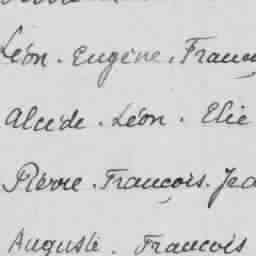 Léon. Eugène. Franço
Alcide. Léon. Elie
Pierre. François. Jea
Auguste. François